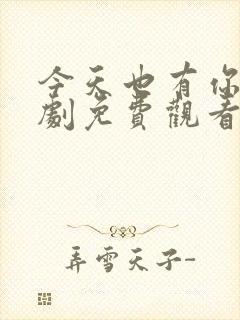 今天也有你
劇免費觀看
弄雪天子-